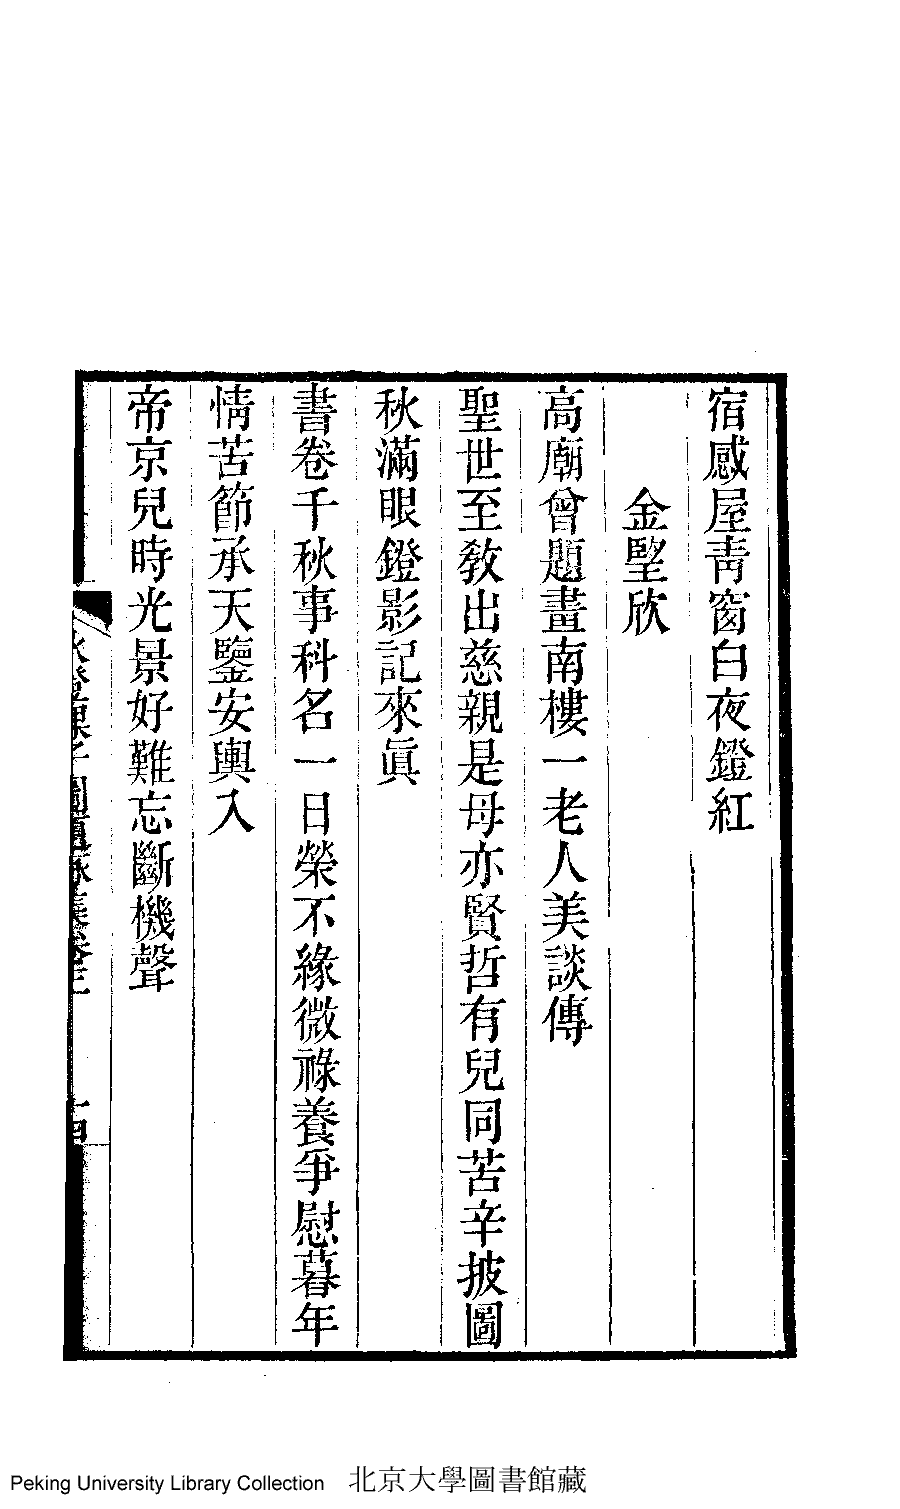 宿感屋靑窗白夜鐙紅
金堅欣
高廟曾題畫南樓一老人美談傳
聖世至敎出慈親是母亦賢哲有兒同苦辛披圖
秋滿眼鐙影記來眞
書卷千秋事科名一日榮不緣微祿養爭慰暮年
情苦節承天鑒安輿入
帝京兒時光景好難忘斷機聲
課子圖題詠集卷三
十四
Peking University Library Collection 北京大學圖書館藏